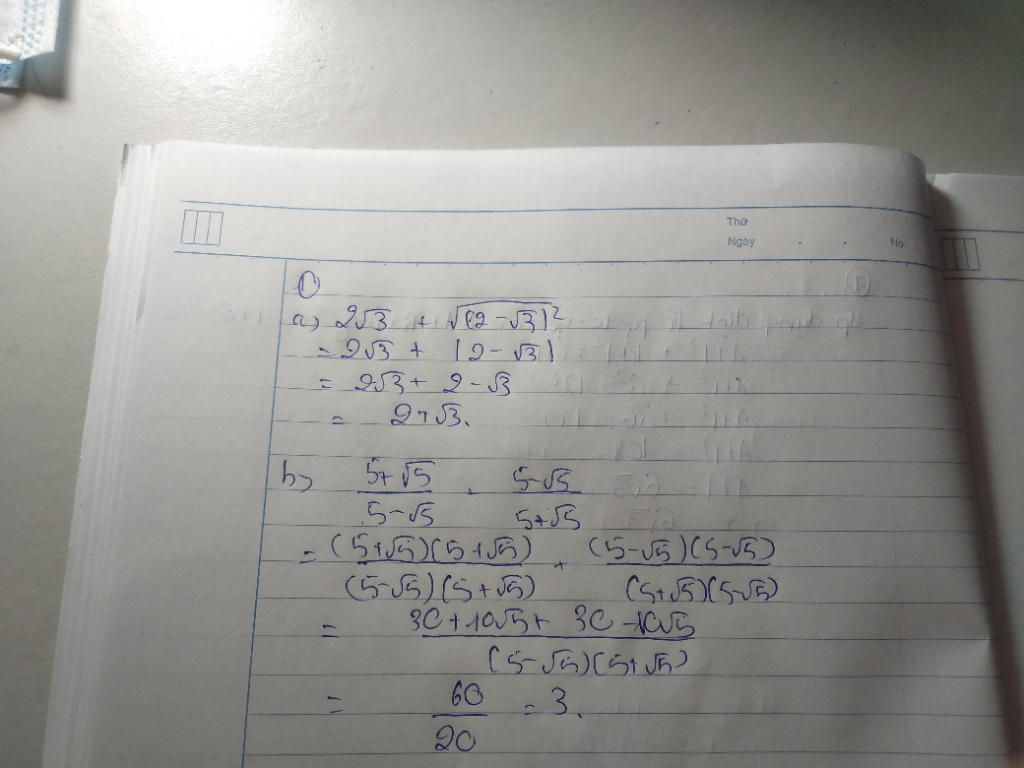 Thứ
Ngày . . No.
①
a) 2√3 + √(2-√3)²
= 2√3 + |2-√3|
= 2√3 + 2-√3
= 2+√3.
b) (5+√5)/(5-√5) + (5-√5)/(5+√5)
= (5+√5)(5+√5)/(5-√5)(5+√5) + (5-√5)(5-√5)/(5+√5)(5-√5)
= 30+10√5+30-10√5/(5-√5)(5+√5)
= 60/20 = 3.